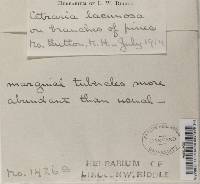 HERBARIUM OF L. W. RIDDLE
Cetraria lacunosa
on branches of pines
No. Sutton, N. H. - July 1914
marginal tubercles more
abundant than usual -
HERBARIUM OF
LINCOLN W. RIDDLE
No. 1426